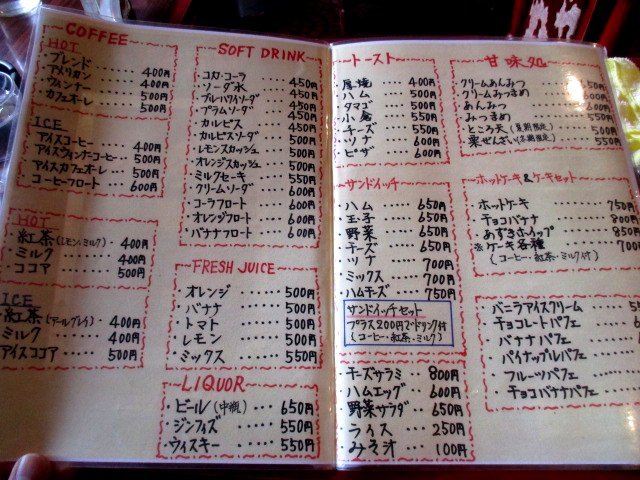 COFFEE
HOT
ブレンド 400円
アメリカン 400円
ウィンナー 500円
カフェオーレ 500円
ICE
アイスコーヒー 400円
アイスウィンナーコーヒー 500円
アイスカフェオーレ 500円
コーヒーフロート 600円
HOT
紅茶(レモン・ミルク) 400円
ミルク 400円
ココア 500円
ICE
紅茶(アールグレイ) 400円
ミルク 400円
アイスココア 500円
SOFT DRINK
コカ・コーラ 450円
ソーダ水 450円
ブルーハワイソーダ 450円
プラムソーダ 450円
カルピス 450円
カルピスソーダ 500円
レモンスカッシュ 500円
オレンジスカッシュ 500円
ミルクセーキ 550円
クリームソーダ 600円
コーラフロート 600円
オレンジフロート 600円
バナナフロート 600円
FRESH JUICE
オレンジ 500円
バナナ 500円
トマト 500円
レモン 500円
ミックス 550円
LIQUOR
ビール(中瓶) 650円
ジンフィズ 550円
ウィスキー 550円
トースト
厚焼 400円
ハム
タマゴ
小倉
チーズ
ツナ
ピザ 600円
サンドイッチ
ハム 650円
玉子 650円
野菜 650円
チーズ 650円
ツナ 700円
ミックス 700円
ハムチーズ 750円
サンドイッチセット
プラス200円でドリンク付
(コーヒー・紅茶・ミルク)
チーズサラミ 800円
ハムエッグ 600円
野菜サラダ 650円
ライス 250円
みそ汁 100円
甘味処
クリームあんみつ
クリームみつまめ
あんみつ
みつまめ
ところ天(夏期限定)
栗ぜんざい(冬期限定) 550円
ホットケーキ&ケーキセット
ホットケーキ 750円
チョコバナナ 800円
あずきホイップ 850円
※ケーキ各種 700円
(コーヒー・紅茶・ミルク付)
バニラアイスクリーム
チョコレートパフェ
バナナパフェ
パイナップルパフェ
フルーツパフェ
チョコバナナパフェ